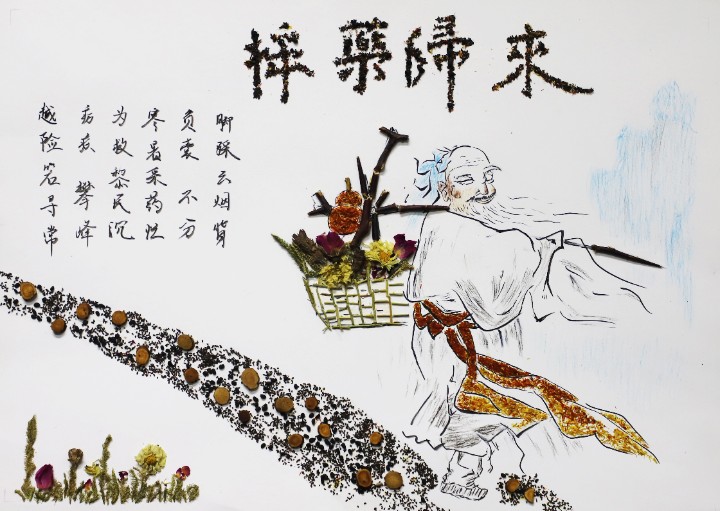 採藥歸來
脚踩云烟肩
负囊 不分
寒暑采药忙
为救黎民沉
疴疾 攀峰
越险若寻常